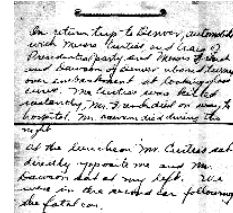 On return trip to Denver, automobile
with Messrs Curtiss and Craig of
Presidential party, and Messrs French
and Dawson of Denver aboard turned
over embankment at Lookout
curve. Mr. Curtiss was killed
instantly, Mr. French died on way to
hospital. Mr. Dawson died during the
night
At the luncheon Mr. Curtiss sat
directly opposite me and Mr.
Dawson sat at my left. We
were in the second car following
the fatal car.